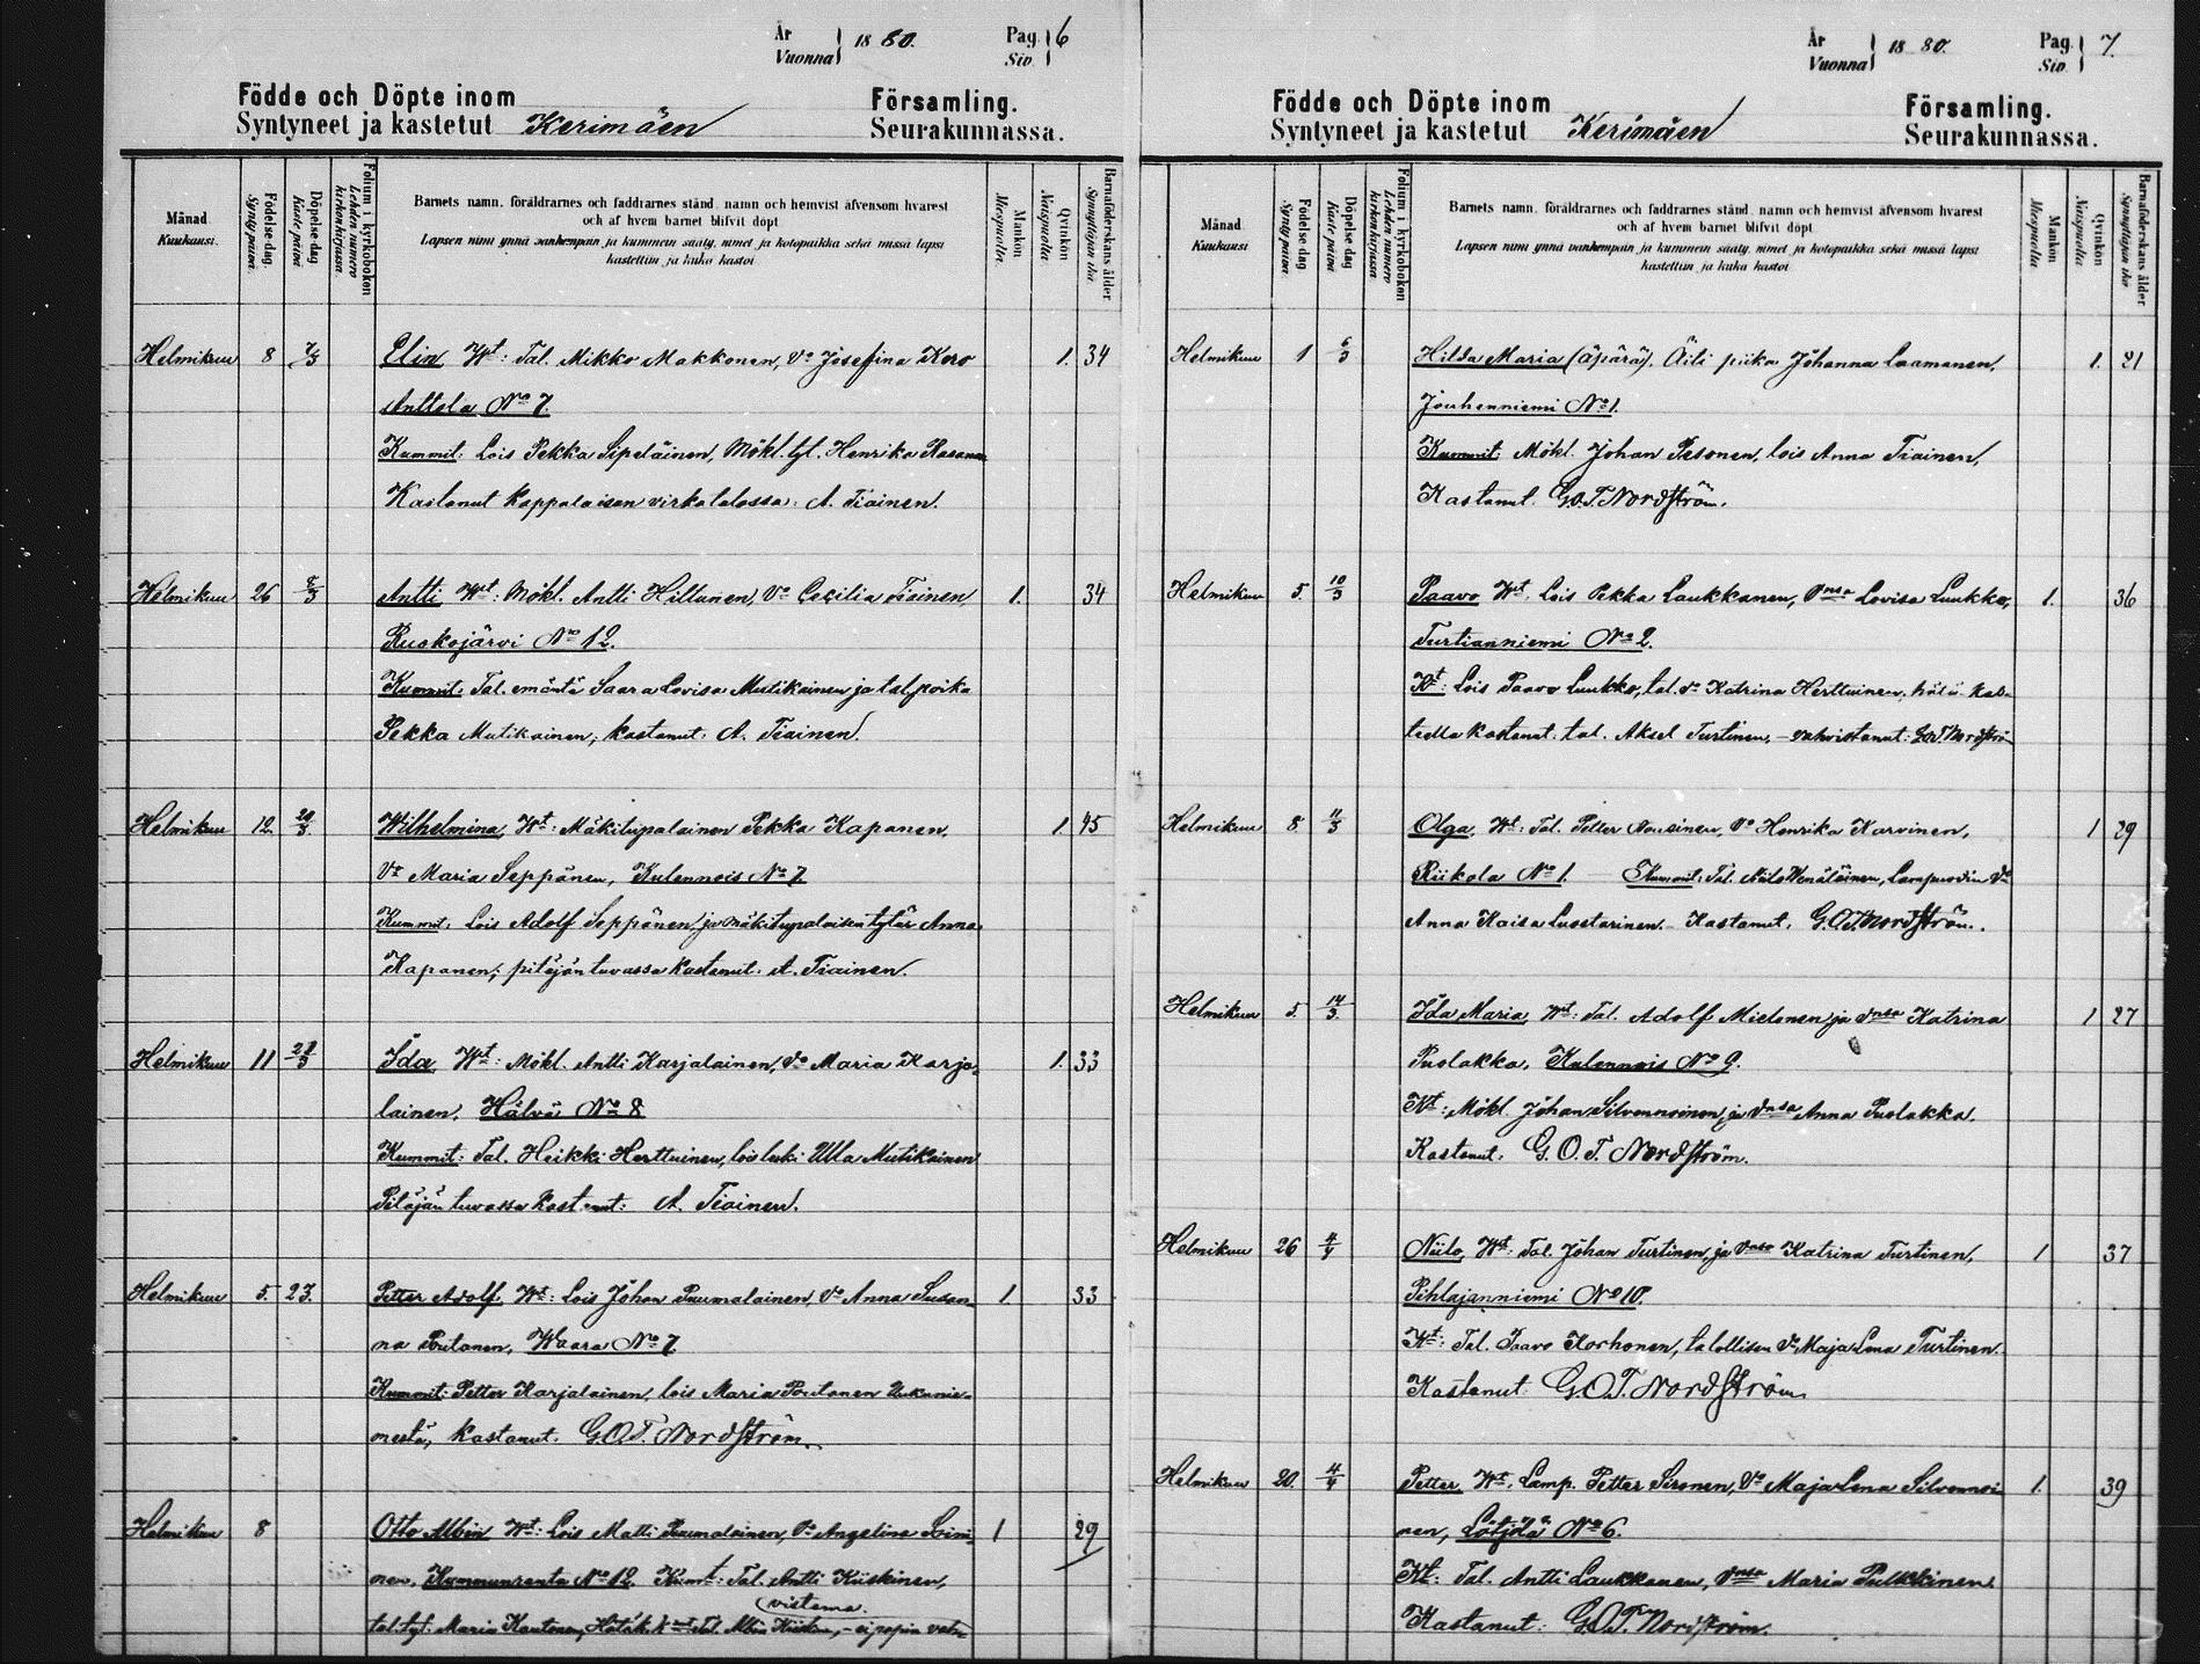 År
Vuonna 1880.
Pag.
Siv. 6
Födde och Döpte inom Församling.
Syntyneet ja kastetut Kerimäen Seurakunnassa.
Månad
Kuukausi.
Födelse dag.
Synty päivä.
Döpelse dag
Kaste päivä
Folium i kyrkoboken
Lehden numero kirkonkirjassa.
Barnets namn, föräldrarnes och faddrarnes stånd, namn och hemvist äfvensom hvarest
och af hvem barnet blifvit döpt
Lapsen nimi ynnä vanhempain ja kummein sääty, nimet ja kotopaikka sekä missä lapsi
kastettiin ja kuka kastoi
Mankön
Miespuolia.
Qvinkön
Naispuolia
Barnaföderskans ålder
Synnyttäjän ikä
Helmikuu 8 7/3 Elin Wt: Tal. Mikko Makkonen, Vo Josefina Kero 1. 34
Anttola No 7.
Kummit: Lois Pekka Sipeläinen, Mökl. tyt. Henrika Kosonen
Kastanut kappalaisen virkatalossa: A. Tiainen.
Helmikuu 26 8/3 Antti Wt: Mökl. Antti Hiltunen, Vo Cecilia Tiainen, 1. 34
Ruokojärvi No 12.
Kummit: Tal. emäntä Saara Lovisa Mutikainen ja tal. poika
Pekka Mutikainen; kastanut: A. Tiainen.
Helmikuu 12. 20/3. Wilhelmina, Wt: Mäkitupalainen Pekka Kapanen, 1. 45
Vo Maria Seppänen, Kulennois No 7
Kummit: Lois Adolf Seppänen, ja mäkitupalaisen tytär Anna
Kapanen; pitäjän tuvassa kastanut: A. Tiainen.
Helmikuu 11 21/3 Ida Wt: Mökl. Antti Karjalainen, Vo Maria Karja- 1. 33
lainen, Hälvä No 8
Kummit: Tal. Heikki Herttuinen, lois leski Ulla Mutikainen
Pitäjän tuvassa kastanut: A. Tiainen.
Helmikuu 5. 23. Petter Adolf. Wt: Lois Johan Puumalainen, Vo Anna Susan- 1. 33
na Poutanen, Waara No 7
Kummit: Petter Karjalainen, lois Maria Poutanen
kastanut. G.O.T. Nordström.
Helmikuu 8 Otto Albin Wt: Lois Matti Puumalainen, Vo Angelina 1 29
nen, Kummunranta No 12. Kumt: Tal. Antti Kiiskinen,
vistama.
tal. tyt. Maria Kautonen, Hätäk. Tal. Albin Kiiskinen, - ei papin vah-
År
Vuonna 1880.
Pag.
Siv. 7.
Födde och Döpte inom Församling.
Syntyneet ja kastetut Kerimäen Seurakunnassa.
Månad
Kuukausi
Födelse dag
Synty päivä
Döpelse dag
Kaste päivä
Folium i kyrkoboken
Lehden numero kirkonkirjassa
Barnets namn, föräldrarnes och faddrarnes stånd, namn och hemvist äfvensom hvarest
och af hvem barnet blifvit döpt
Lapsen nimi ynnä vanhempain ja kummein sääty, nimet ja kotopaikka sekä missä lapsi
kastettiin ja kuka kastoi
Mankön
Miespuolia
Qvinkön
Naispuolia
Barnaföderskans ålder
Synnyttäjän ikä
Helmikuu 1 6/3 Hilda Maria (äpärä). Äiti piika Johanna Laamanen, 1. 21
Jouhenniemi No 1.
Kummit: Mökl. Johan Pesonen, lois Anna Tiainen,
Kastanut. G.O.T. Nordström.
Helmikuu 5. 10/3 Paavo Wt. Lois Pekka Laukkanen, Vnsa Lovisa Luukko, 1. 36
Turtianniemi No 2.
Kt: Lois Paavo Luukko, tal. vo Katrina Herttuinen, hätä kas-
teella kastanut. tal. Aksel Turtinen, - vahvistanut: G.O.T. Nordström
Helmikuu 8 11/3 Olga, Wt: Tal. Petter Nousinen, Vo Henrika Karvinen, 1 29
Riikola No 1. Kummit: Tal. Niilo Wenäläinen, Lampuodin Vo
Anna Kaisa Luostarinen. - Kastanut. G.O.T. Nordström.
Helmikuu 5. 14/3. Ida Maria, Wt: Tal. Adolf Mielonen ja vnsa Katrina 1 27
Puolakka, Kulennois No 9.
Kt: Mökl. Johan Silvennoinen, ja vnsa Anna Puolakka.
Kastanut. G.O.T. Nordström.
Helmikuu 26 4/4 Niilo, Wt: Tal. Johan Turtinen, ja vnsa Katrina Turtinen, 1 37
Pihlajanniemi No 10.
Kt: Tal. Paavo Korhonen, talollisen Vo Maja Lena Turtinen.
Kastanut G.O.T. Nordström
Helmikuu 20. 4/4 Petter Wt. Lamp. Petter Sironen, Vo Maja Lena Silvennoi- 1. 39
nen, Lötjölä No 6.
Kt: Tal. Antti Laukkanen, Vnsa Maria Pulkkinen.
Kastanut: G.O.T. Nordström.